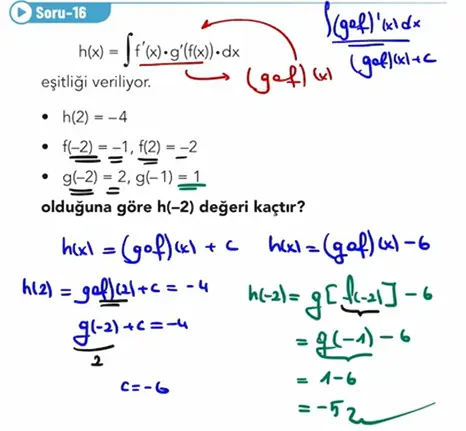 Soru-16
h(x) = ∫ f′(x)·g′(f(x))·dx
∫(gof)'(x)dx
(gof)(x)+c
(gof)(x)
eşitliği veriliyor.
• h(2) = −4
• f(−2) = −1, f(2) = −2
• g(−2) = 2, g(−1) = 1
olduğuna göre h(−2) değeri kaçtır?
h(x) = (gof)(x) + c
h(2) = gof)(2)+c = -4
g(-2)+c = -4
2
c = -6
h(x) = (gof)(x) - 6
h(-2) = g[f(-2)] - 6
= g(-1) - 6
= 1-6
= -5